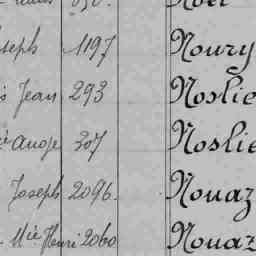 Joseph 1197 Noury
Jean 293 Noslie
Ange 307 Noslie
Joseph 2096. Nouaz
Mie Henri 2060 Nouaz